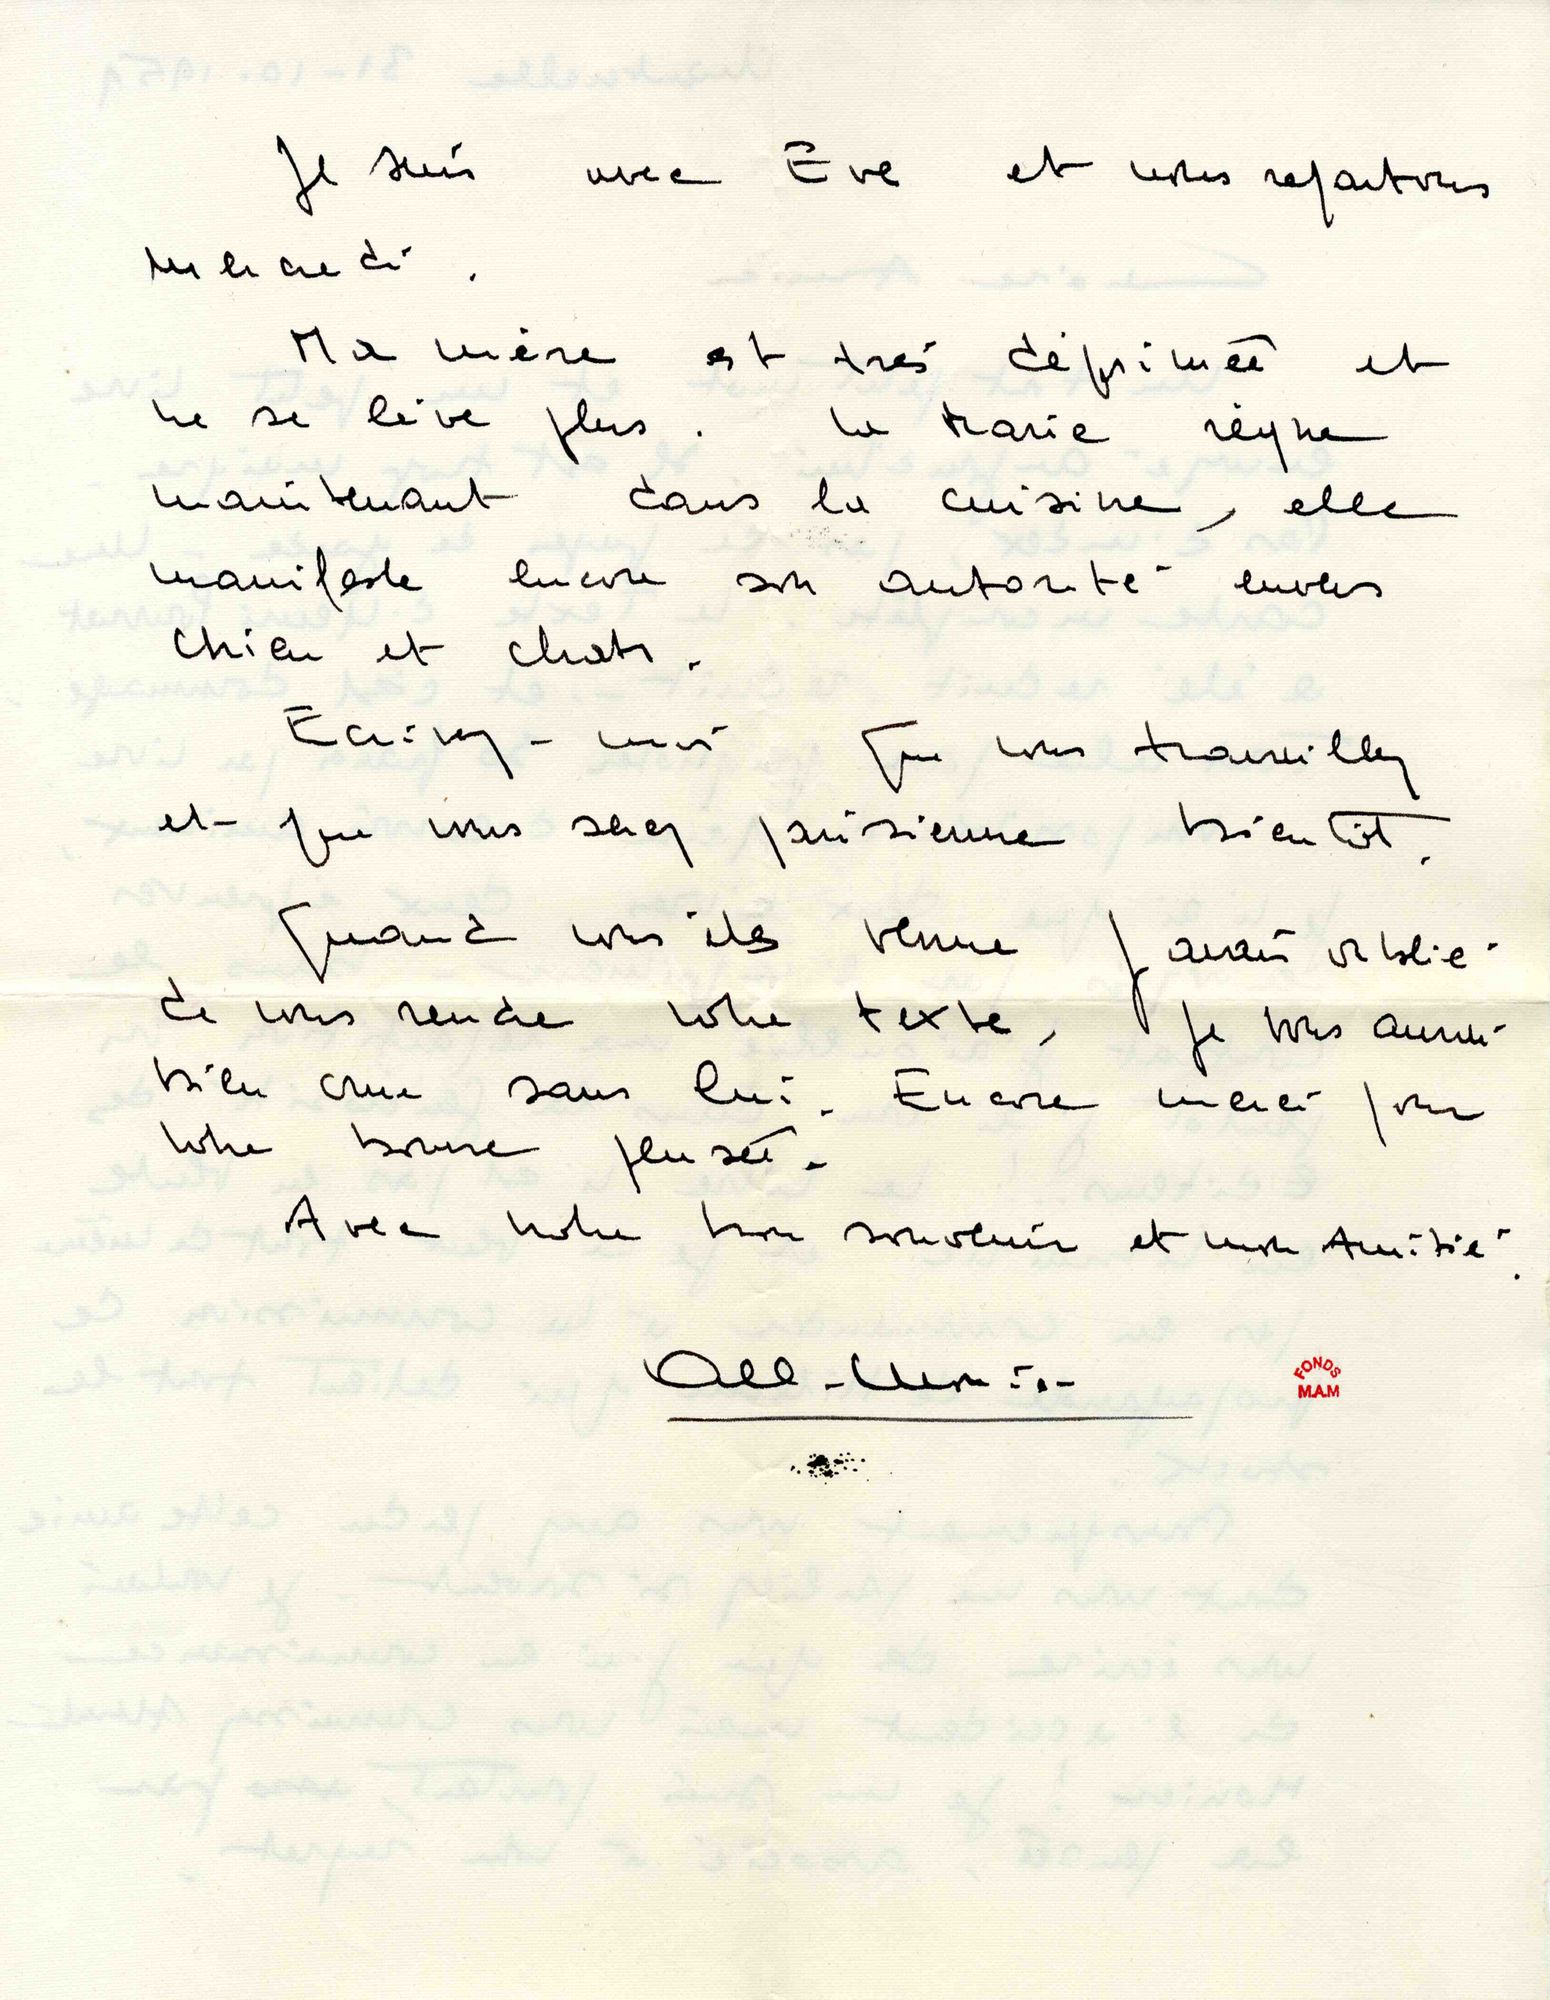 Je suis avec Eve et nous repartons
mercredi.
Ma mère est très déprimée et
ne se lève plus. La Marie règne
maintenant dans la cuisine, elle
manifeste encore son autorité envers
chien et chats.
Ecrivez-moi que vous travaillez
et que vous serez parisienne bientôt.
Quand vous êtes venue j'avais oublié
de vous rendre votre texte, je vous aurais
bien crue sans lui. Encore merci pour
votre bonne pensée.
Avec notre bon souvenir et mon Amitié.
FONDS
M.A.M